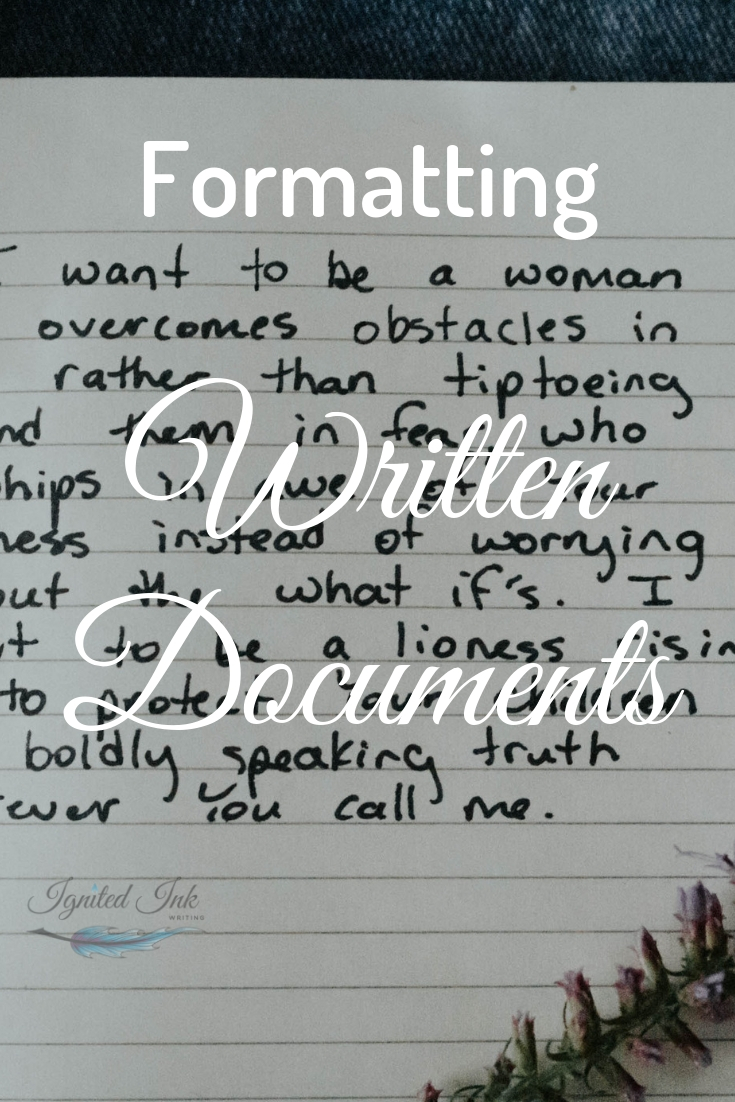 Formatting
I want to be a woman
overcomes obstacles in
rather than tiptoeing
nd them in fear who
hips in awe of Your
ness instead of worrying
out the what if's. I
t to be a lioness risin
to protect Your children
boldly speaking truth
ever You call me.
Written
Documents
Ignited Ink
WRITING